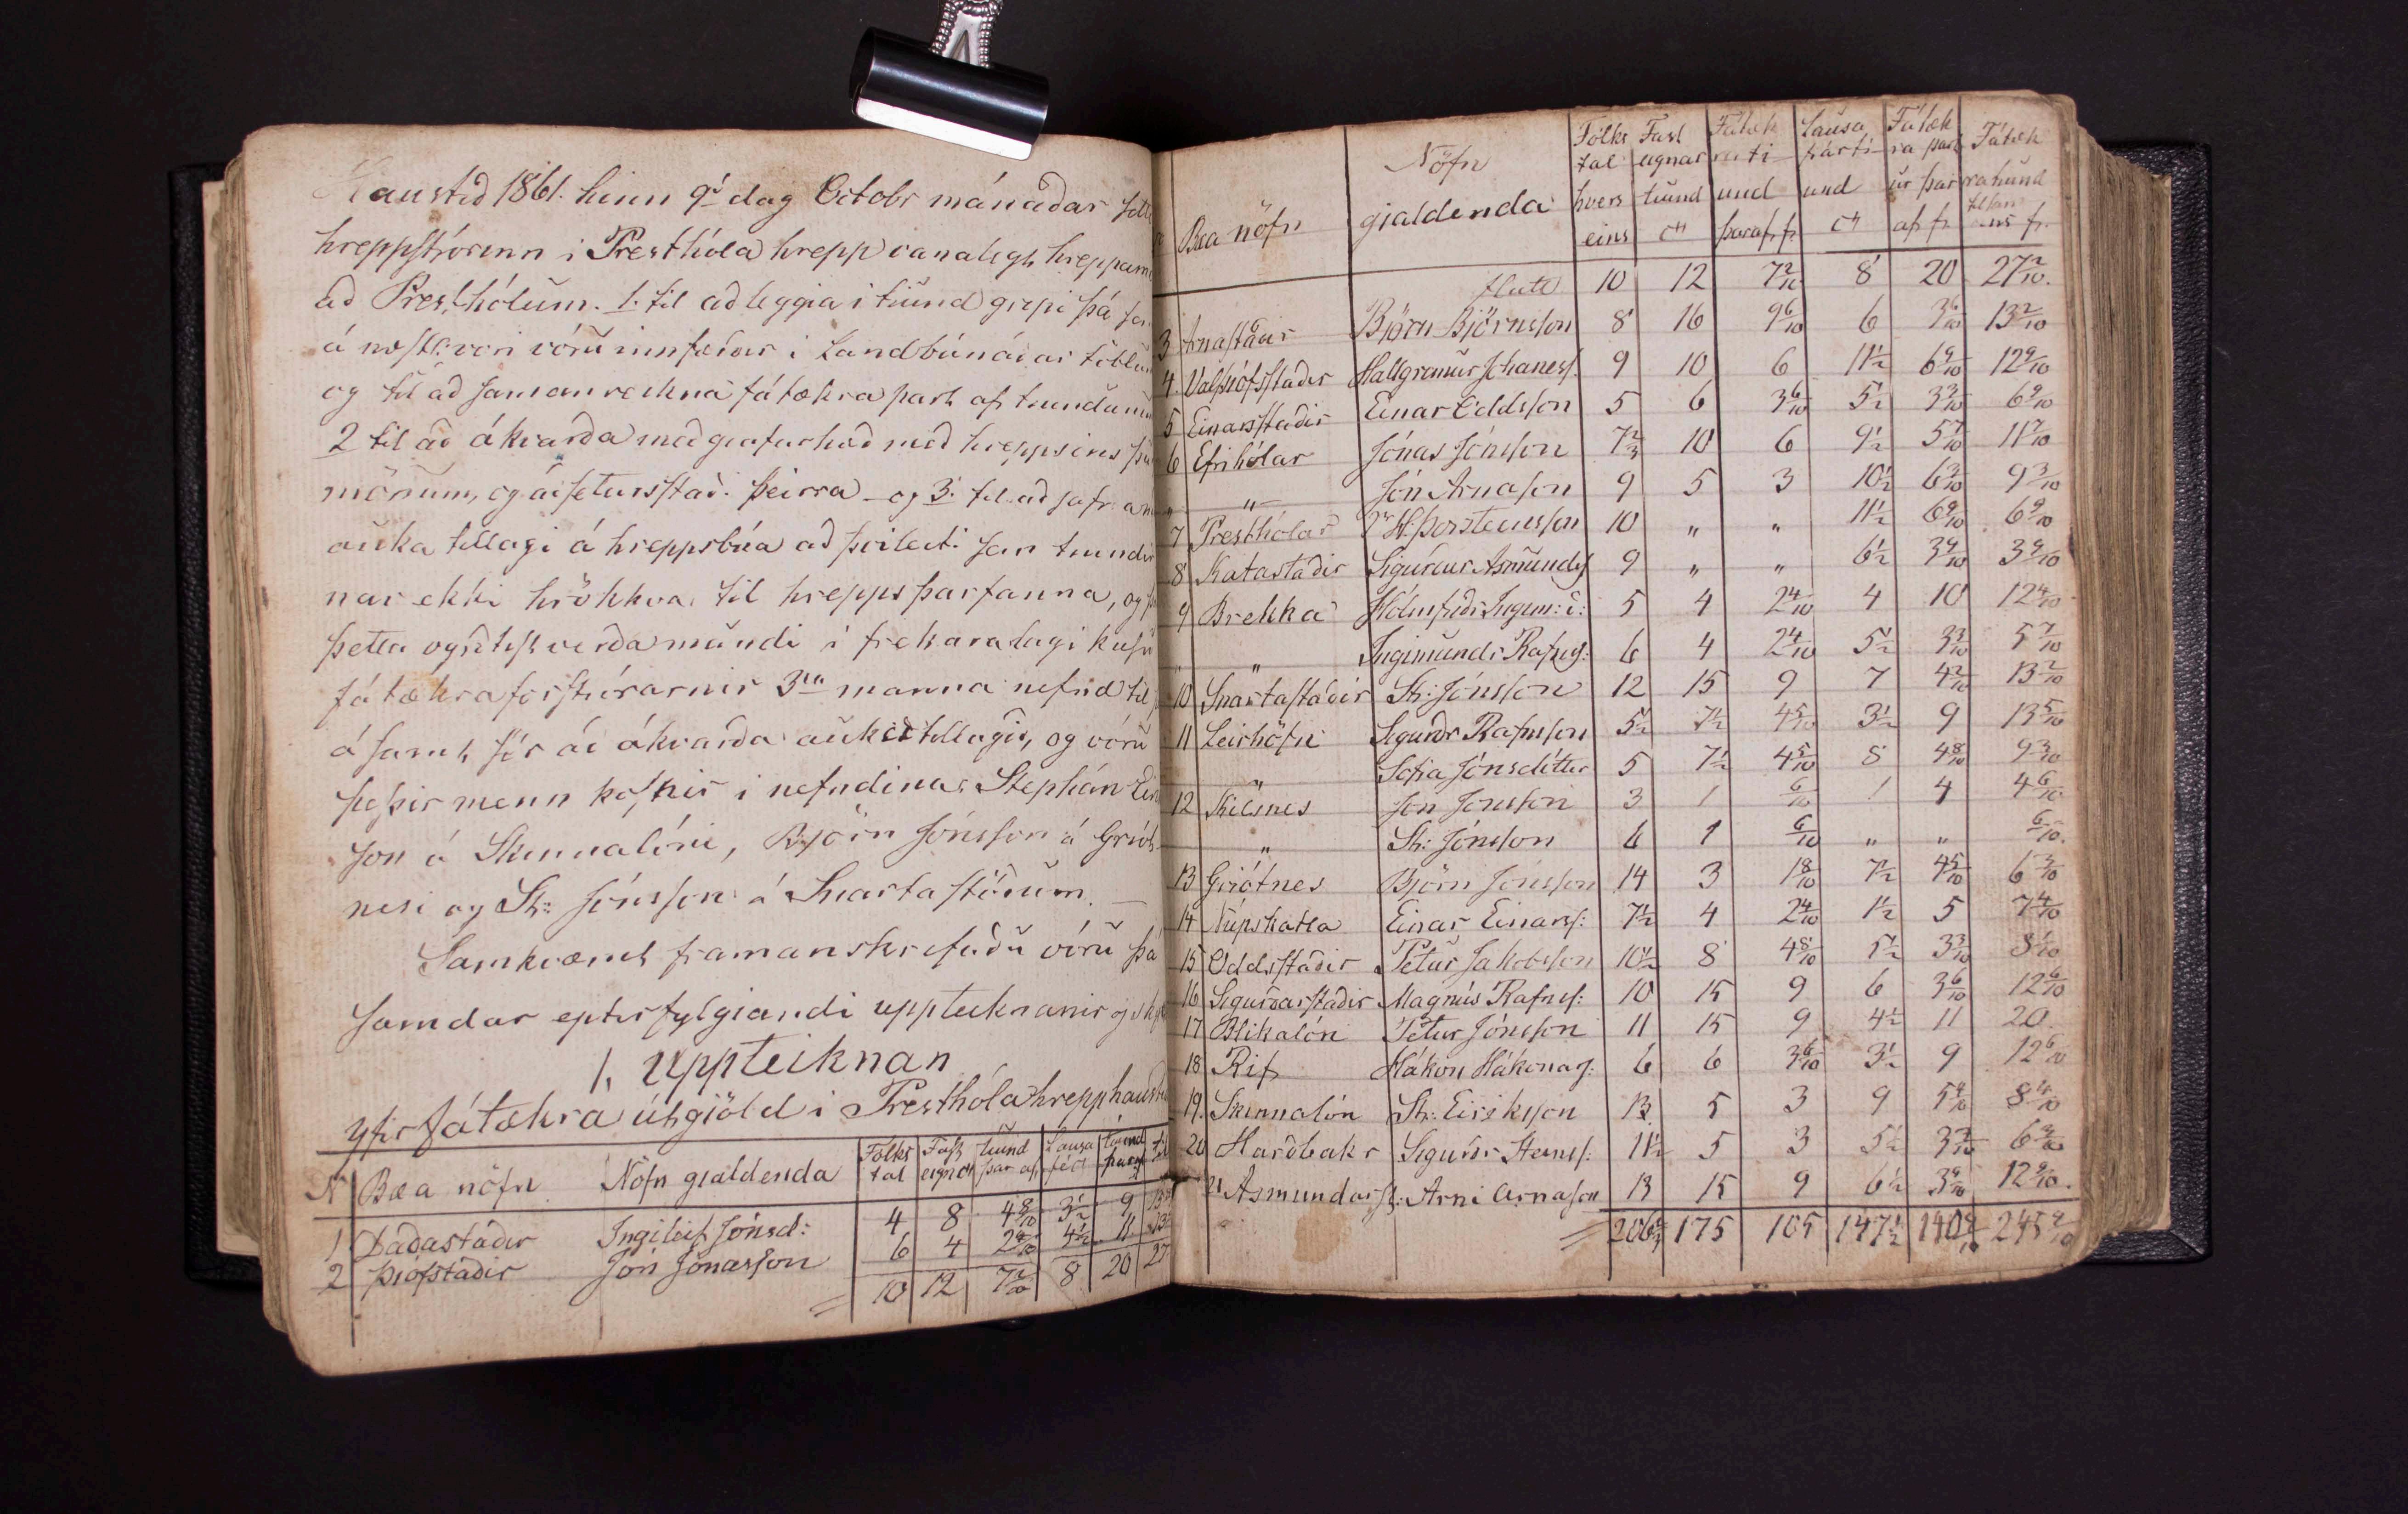 Haustid 1861. hinn 9d dag Octobr mánaðar
hreppstjórinn i Presthóla hrepp vanalegt
ad Presthólum. 1. til ad leggja i tiund gripi þá
á næstl: vori vóru innfærdar i Landbúnaðar
og til ad samanreikna fátækra part af tiundunum
2 til ad ákvarda medgiafarhæd med hreppsins
mönnum, og adsetursstad þeirra - og 3. til ad jafna
auka tillagi á hreppsbúa ad þvileiti sem
nar ekki hrökkva til hrepps þarfanna, og
þetta verda mundi i frekaralagi
fátækraforstiórarnir 3ia manna nefnd til
á samt sér ad ákvarda aukatillagid, og vóru
þessir menn kosnir i nefndina: Stephán
son á Skinnalóni, Björn Jónsson á Griót
nesi og St: Jónsson á Snartastödum. —
Samkvæmt framanskrifudu vóru þá
samdar eptirfylgiandi uppteiknanir
1. Uppteiknan
yfir fátækra útgiöld i Presthólahrepp
N Bæa nöfn Nöfn gialdenda Fólks tal Fast eign Tiund þar af Lausa féd tiund
1 Dadastadir Ingileif Jónsd: 4 8 4 8/10 3 1/2 9
2 Þiófstadir Jón Jónasson 6 4 2 4/10 4 1/2 11
10 12 7 2/10 8 20 27
Bæa nöfn Nöfn gialdenda Fólks tal hvers eins Fast eignar tiund Fátæk ra ti und þaraf f. Lausa fiárti und Fátæk ra part ur þar af f. Fátæk ra tiund
flutt 10 12 7 2/10 8 20 27 2/10.
3 Arnastadir Björn Björnsson 8 16 9 6/10 6 3 6/10 13 2/10
4 Valþiófsstadir Hallgrimur Johaness. 9 10 6 11 1/2 6 9/10 12 9/10
5 Einarsstadir Einar Oddsson 5 6 3 6/10 5 1/2 3 3/10 6 9/10
6 Efrihólar Jónas Jónsson 7 2/3 10 6 9 1/2 5 7/10 11 7/10
„ „ Jón Arnason 9 5 3 10 1/2 6 3/10 9 3/10
7 Presthólar Þorsteinsson 10 „ „ 11 1/2 6 9/10 6 9/10
8 Katastadir Sigurdur Asmunds 9 „ „ 6 1/2 3 9/10 3 9/10
9 Brekka Hólmfrídr Ingim: d: 5 4 2 4/10 4 10 12 4/10
„ „ Ingimundr Rafns: 6 4 2 4/10 5 1/2 3 3/10 5 7/10
10 Snartastadir St: Jónsson 12 15 9 7 4 2/10 13 2/10
11 Leirhöfn Sigurdr Rafnsson 5 1/2 7 1/2 4 5/10 3 1/2 9 13 5/10
„ Sofia Jónsdóttir 5 7 1/2 4 5/10 8 4 8/10 9 3/10
12 Skilsnes Jón Jónsson 3 1 6/10 1 4 4 6/10
„ St: Jónsson 6 1 6/10 „ „ 6/10.
13 Griótnes Björn Jónsson 14 3 1 8/10 7 1/2 4 5/10 6 3/10
14 Núpskatla Einar Einarss: 7 1/2 4 2 4/10 1 1/2 5 7 4/10
15 Oddsstadir Pétur Jakobsson 10 1/2 8 4 8/10 5 1/2 3 3/10 8 1/10
16 Sigurdarstadir Magnús Rafnss: 10 15 9 6 3 6/10 12 6/10
17 Blikalón Pétur Jónsson 11 15 9 4 1/2 11 20.
18 Rif Hákon Hákonars: 6 6 3 6/10 3 1/2 9 12 6/10
19. Skinnalón St: Eiriksson 13 5 3 9 5 4/10 8 4/10
20 Hardbakr Sigurdr Steinss: 11 1/2 5 3 5 1/2 3 3/10 6 3/10
21 Asmundarst: Arni Arnason 13 15 9 6 1/2 3 9/10 12 9/10.
175 105 147 1/2 140 9/10 245 9/10